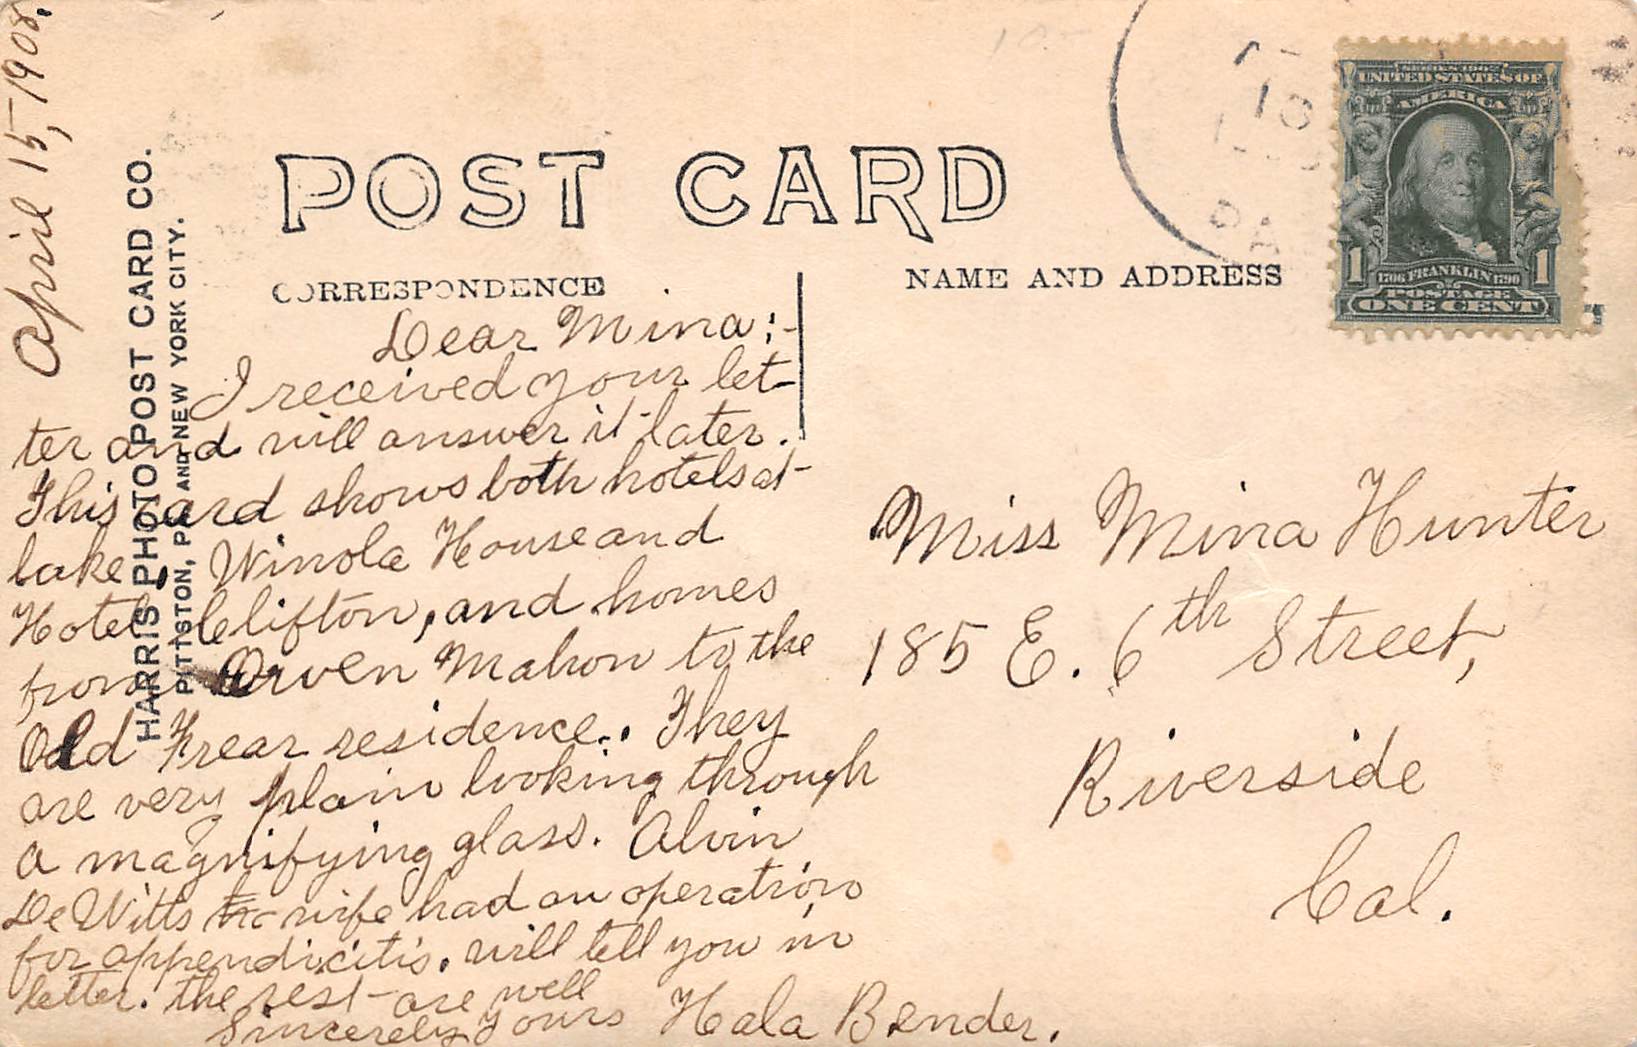 April 15, 1908.
HARRIS PHOTO POST CARD CO.
PITTSTON, PA. AND NEW YORK CITY.
POST CARD
CORRESPONDENCE
NAME AND ADDRESS
SERIES 1902
UNITED STATES OF
AMERICA
1706 FRANKLIN 1790
1 1
POSTAGE
ONE CENT
18
PA
Dear Mina:-
I received your let-
ter and will answer it later.
This card shows both hotels at
lake, Winola House and
Hotel Clifton, and homes
from Orven Mahon to the
Old Frear residence. They
are very plain looking through
a magnifying glass. Alvin
DeWitts wife had an operation
for appendicitis. will tell you in
letter. the rest are well
Sincerely Yours Hala Bender.
Miss Mina Hunter
185 E. 6th Street,
Riverside
Cal.